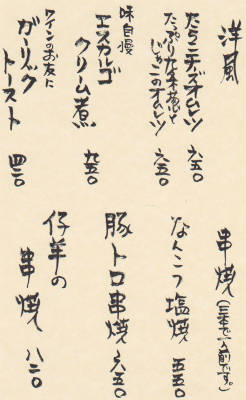 洋風
たらこチーズオムレツ 六五〇
たっぷりな木茸と
じゃこのオムレツ 六五〇
味自慢
エスカルゴ
クリーム煮 九五〇
ワインのお友に
ガーリック
トースト 四二〇
串焼(三本で一人前です。)
なんこつ塩焼 五五〇
豚トロ串焼 六五〇
仔羊の
串焼 八二〇